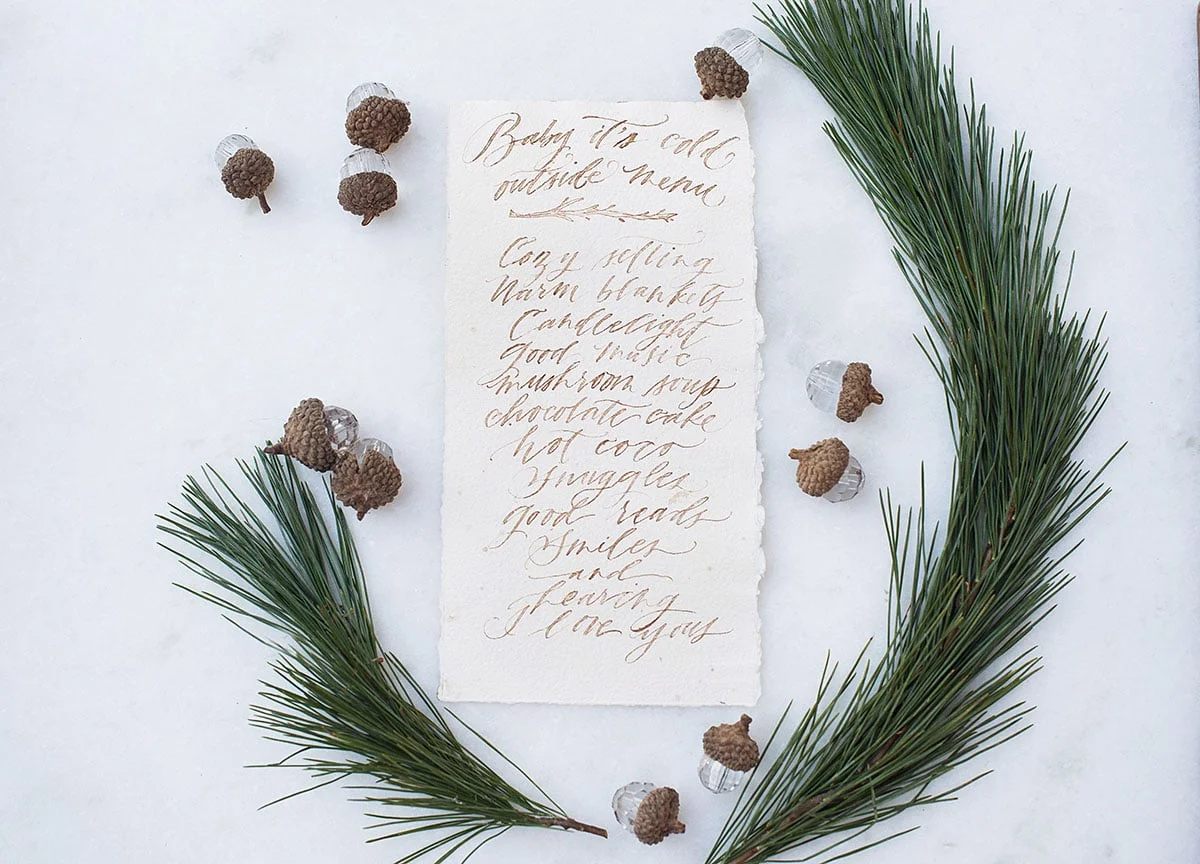 Baby it's cold
outside menu
Cozy setting
Warm blankets
Candlelight
good music
mushroom soup
chocolate cake
hot coco
snuggles
good reads
Smiles
and
hearing
I love yous